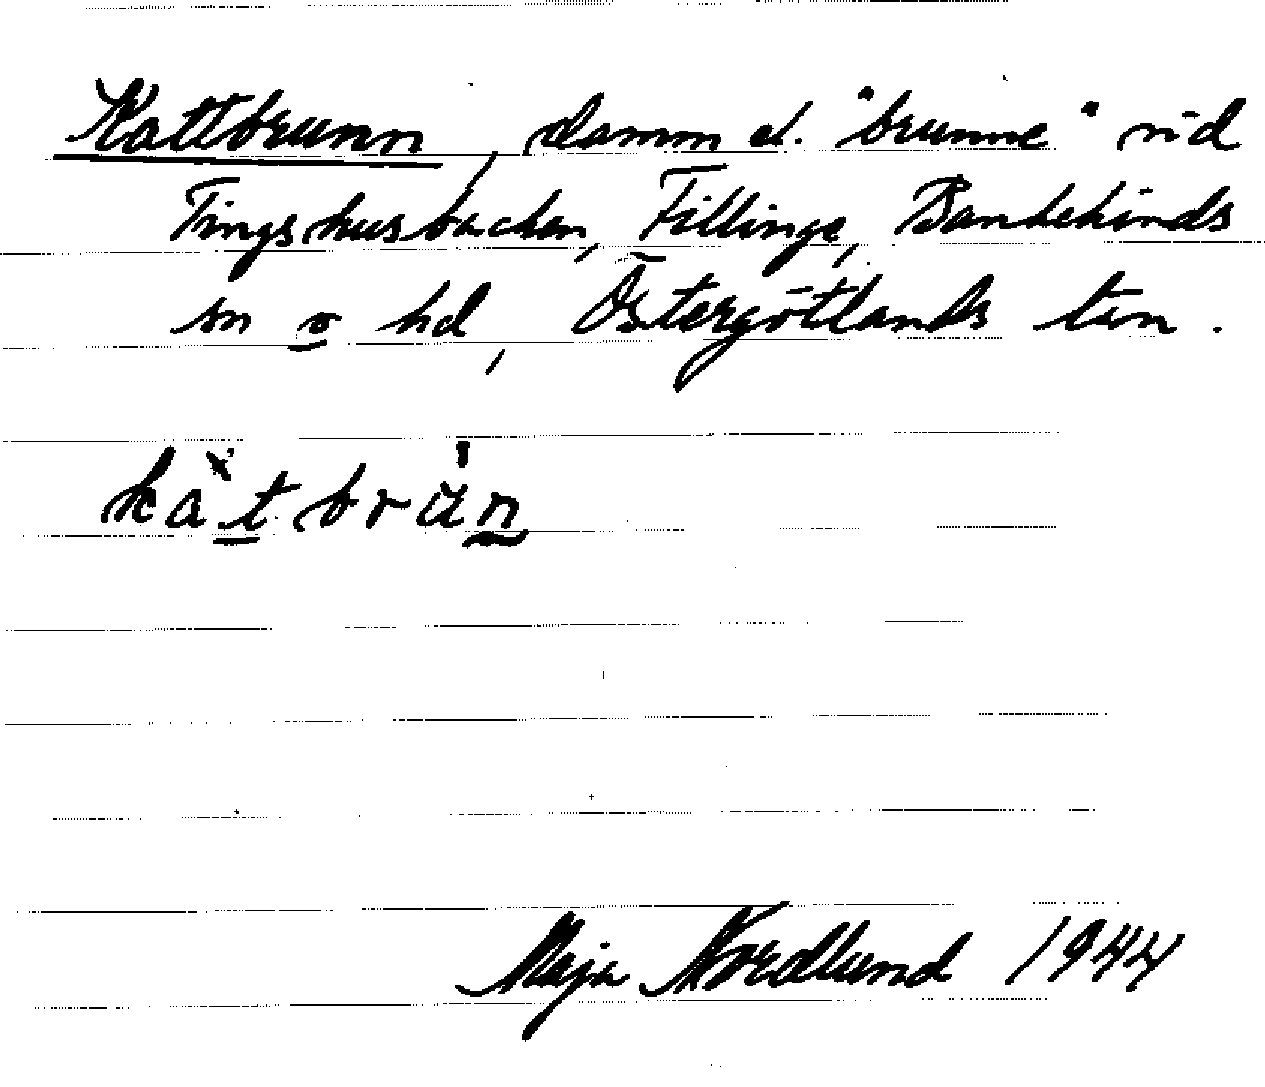 Kattbrunn, damm el. "brunne" vid
Tingshusbacken, Fillinge, Bankekinds
sn o hd, Östergötlands län.
kàt brún
Maja Nordlund 1944